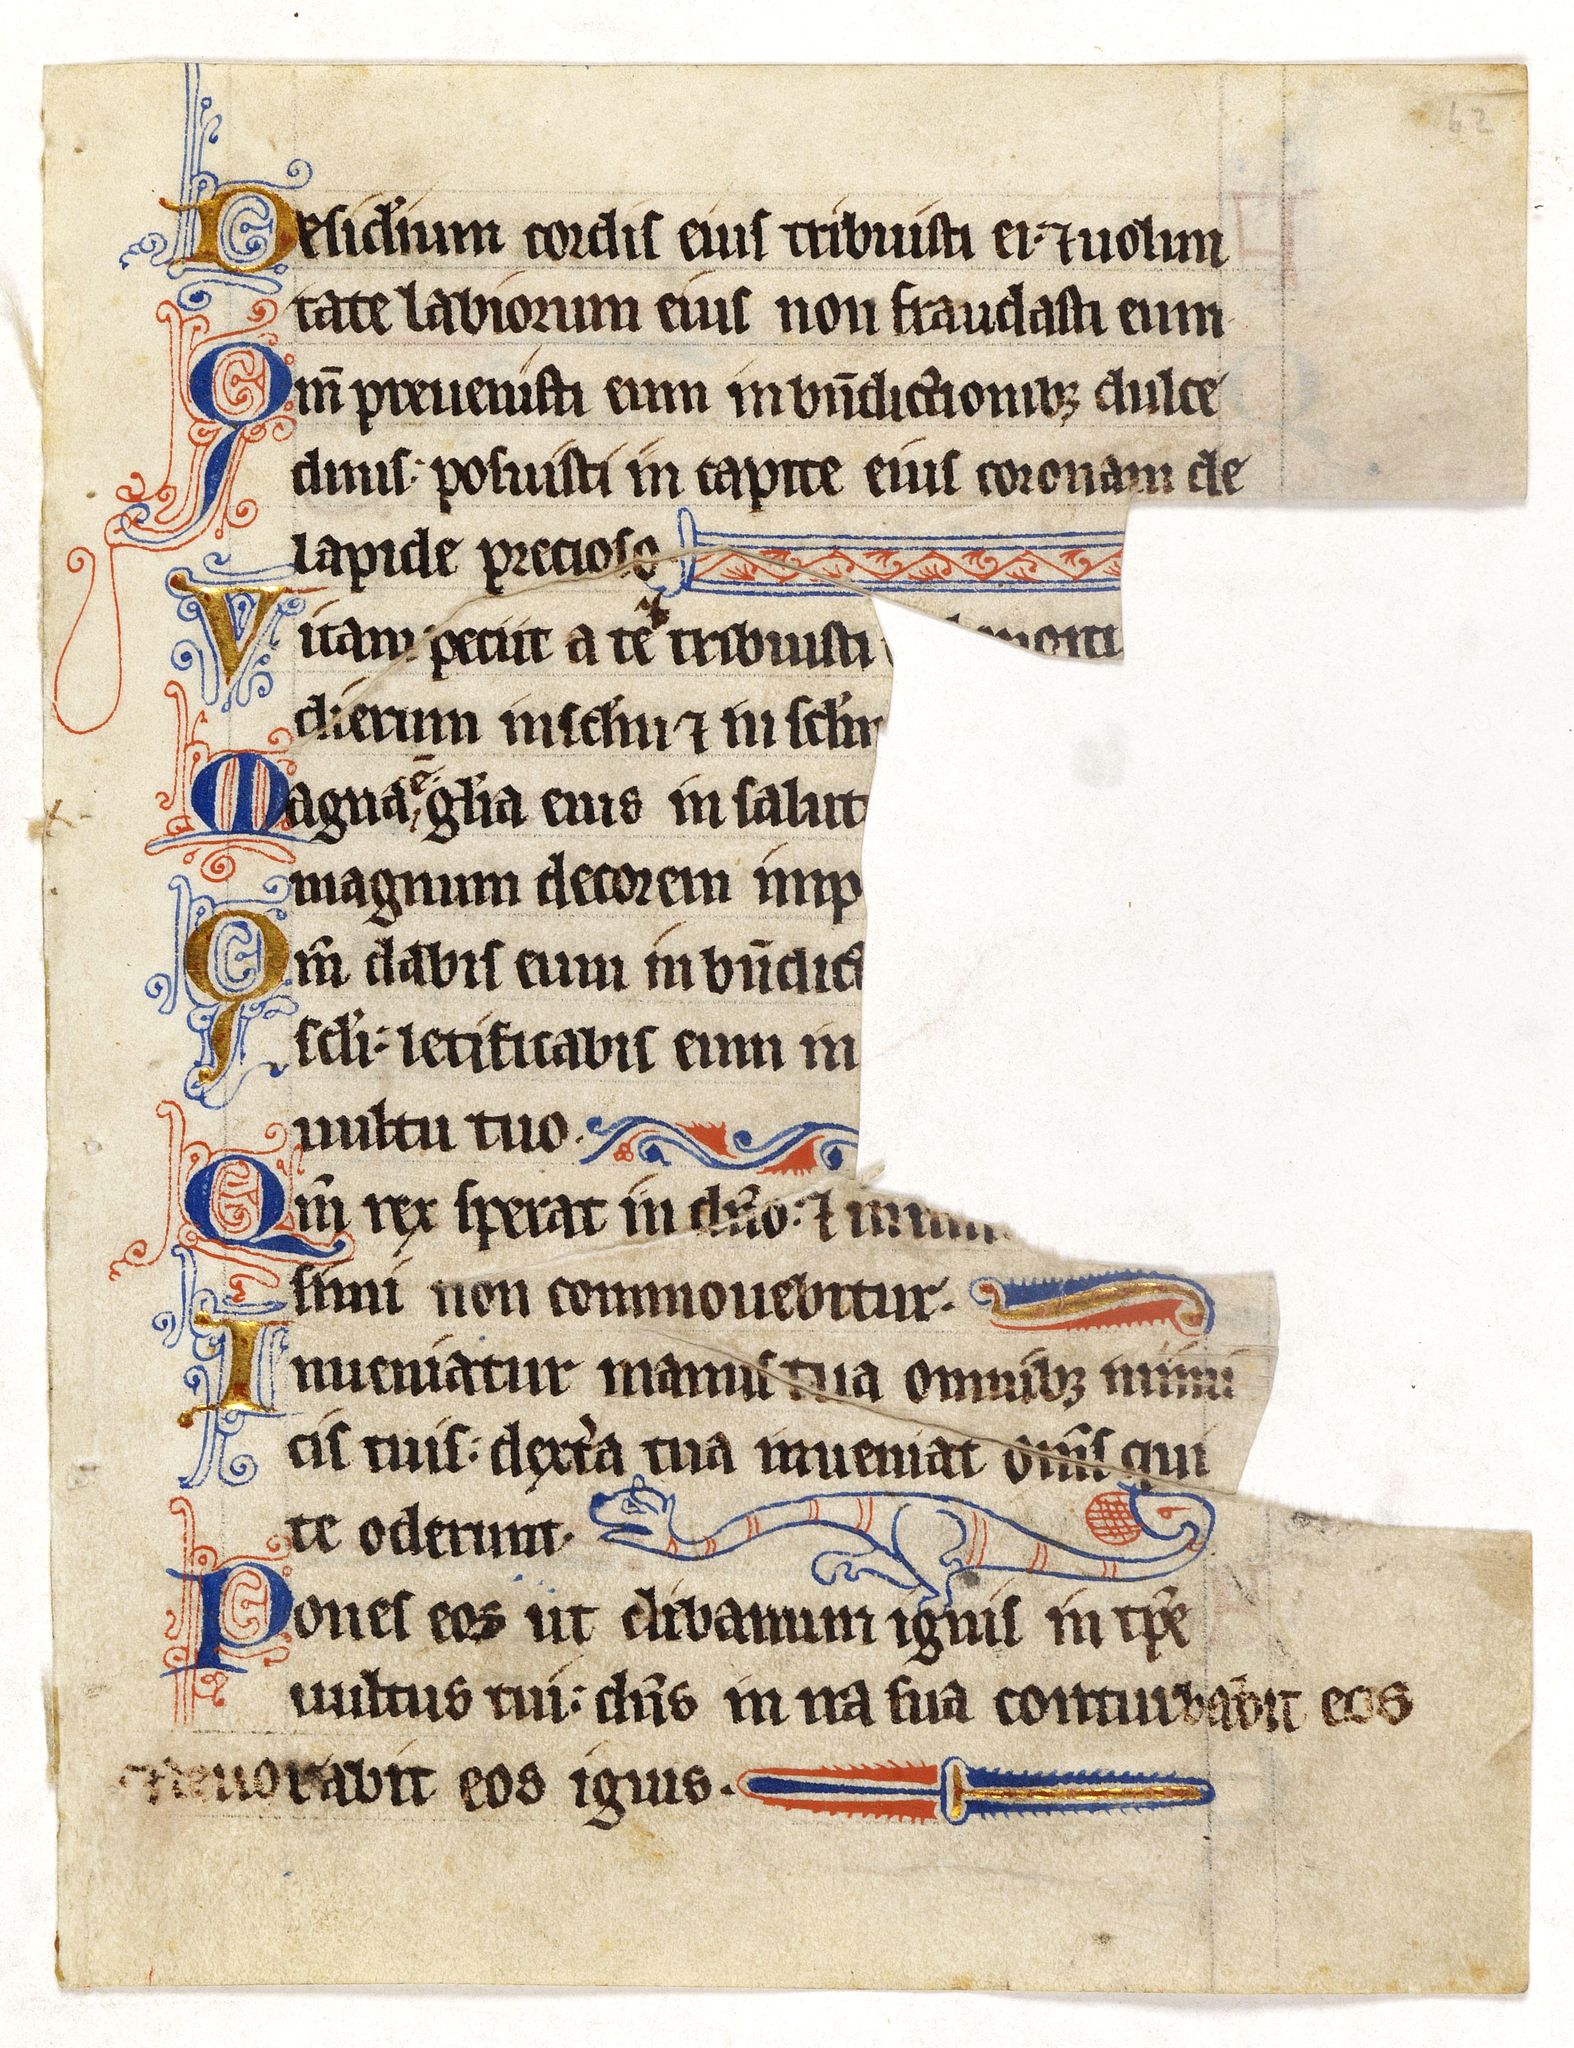 62
Desiđium cordis eius tribuisti ei· ⁊ uolun
tate labiorum eius non fraudasti eum
Qm̄ preuenisti eum in bn̄dictionibꝫ dulce
dinis· posuisti in capite eius coronam de
lapide precioso·
Vitam petiit a te ⁊ tribuisti
dierum in sclm ⁊ in sclm
Magna ē gl'ia eius in salut
magnum decorem imp
Qm̄ dabis eum in bn̄dict
scl'i· letificabis eum in
uultu tuo·
Qm̄ rex sperat in dn̄o· ⁊ in
simi non commouebitur·
Inueniatur manus tua omnibꝫ inimi
cis tuis· dextra tua inueniat om̄s qui
te oderunt·
Pones eos ut clibanum ignis in tp̄e
uultus tui· dn̄s in ira sua conturbabit eos
⁊ deuorabit eos ignis·